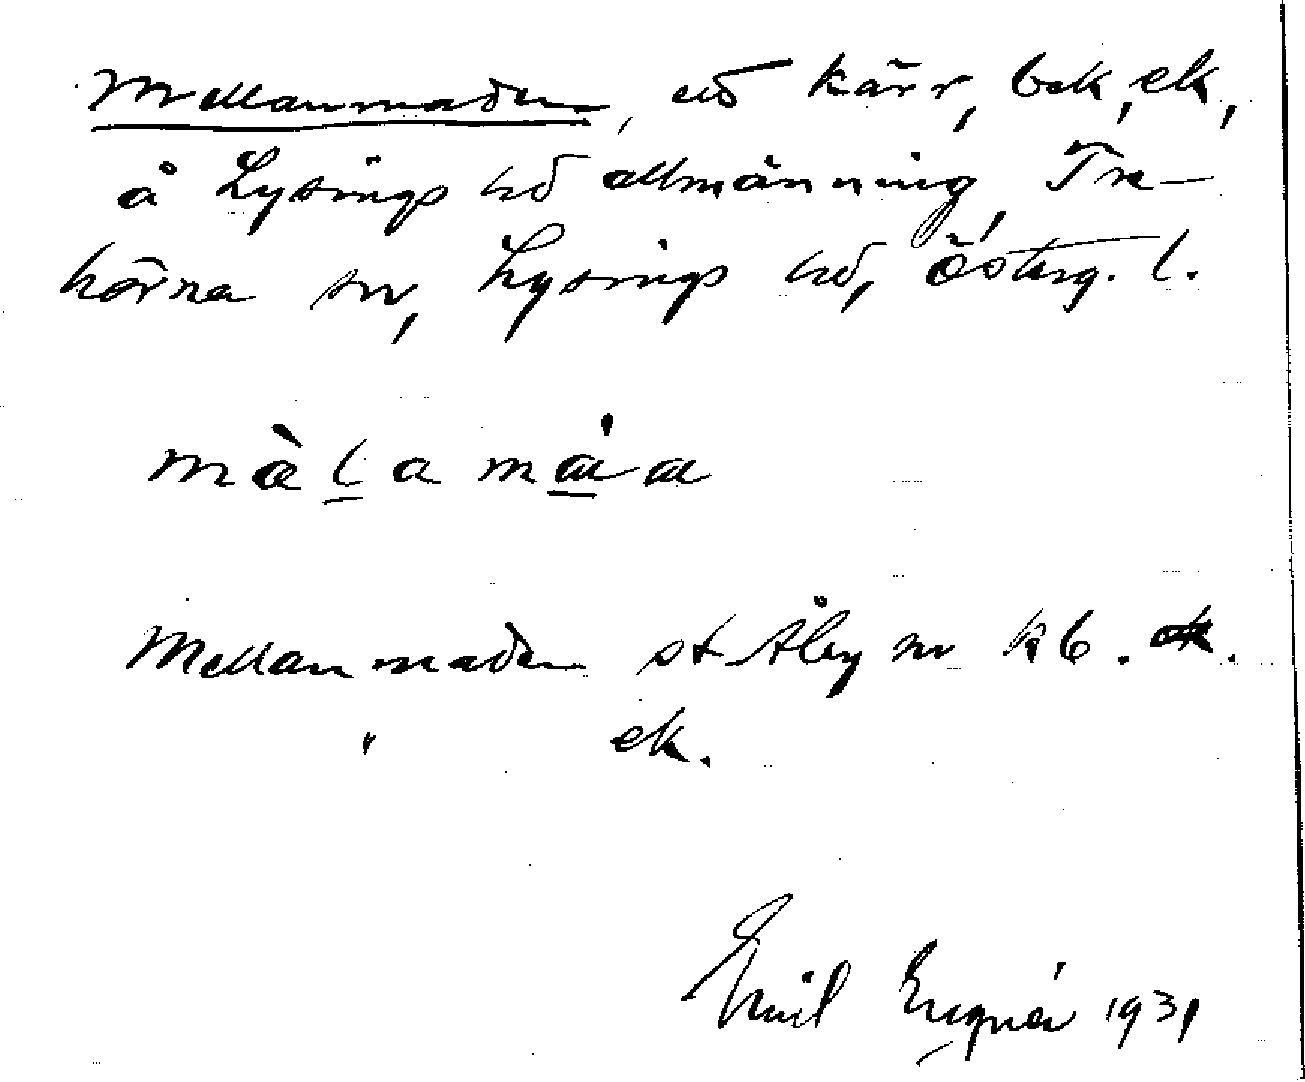 Mellanmaden, ud kärr, bek, ek,
å Lysings hd allmänning, Tre-
hörna sn, Lysings hd, Österg. l.
màlamáa
Mellanmaden st Åby sn k 6. ek.
" ek.
Emil 1931